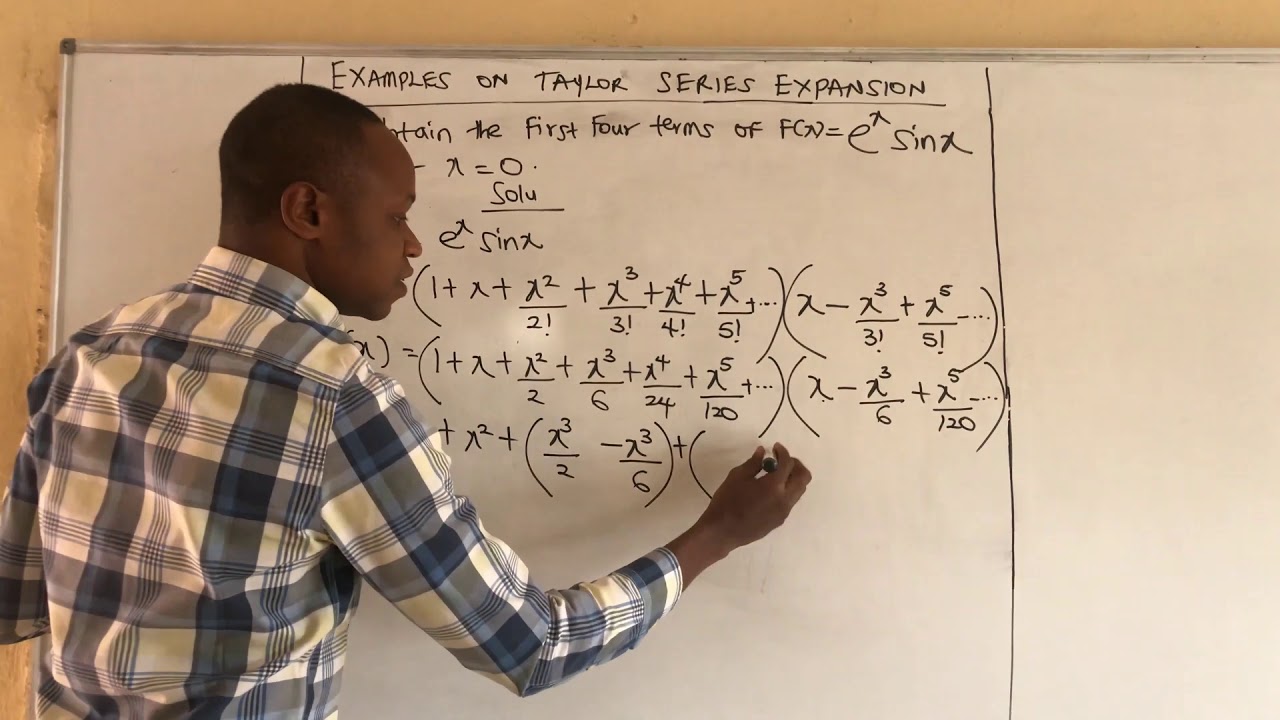 EXAMPLES ON TAYLOR SERIES EXPANSION
the First Four terms of F(x) = e^x sinx
x = 0.
Solu
e^x sinx
(1 + x + x^2/2! + x^3/3! + x^4/4! + x^5/5! + ...)(x - x^3/3! + x^5/5! - ...)
x) = (1 + x + x^2/2 + x^3/6 + x^4/24 + x^5/120 + ...)(x - x^3/6 + x^5/120 - ...)
+ x^2 + (x^3/2 - x^3/6) + (